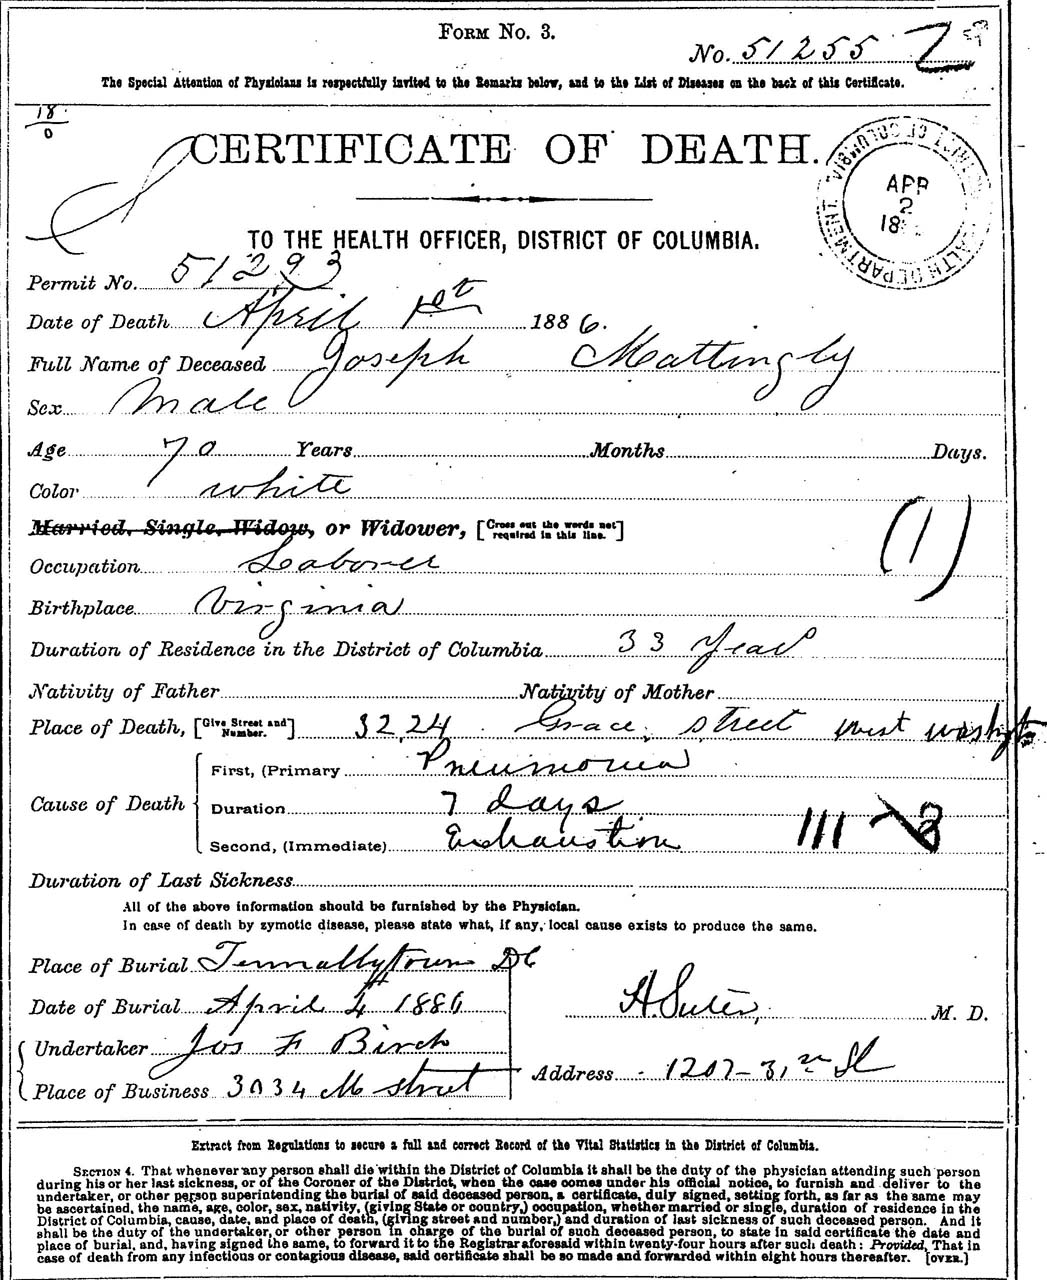 FORM NO. 3.
No. 51255
The Special Attention of Physicians is respectfully invited to the Remarks below, and to the List of Diseases on the back of this Certificate.
18
0
CERTIFICATE OF DEATH.
APR
2
18
TO THE HEALTH OFFICER, DISTRICT OF COLUMBIA.
Permit No. 51293
Date of Death April 1st 1886.
Full Name of Deceased Joseph Mattingly
Sex Male
Age 70 Years Months Days.
Color white
Married, Single, Widow, or Widower, [Cross out the words not required in this line.]
(1)
Occupation Laborer
Birthplace Virginia
Duration of Residence in the District of Columbia 33 Years
Nativity of Father Nativity of Mother
Place of Death, [Give Street and Number.] 3224 Grace street west washgtn
Cause of Death { First, (Primary Pneumonia
Duration 7 days
Second, (Immediate) Exhaustion
III
Duration of Last Sickness
All of the above information should be furnished by the Physician.
In case of death by zymotic disease, please state what, if any, local cause exists to produce the same.
Place of Burial Tennallytown DC
Date of Burial April 4th 1886
H Suter, M. D.
Undertaker Jos F Birch
Place of Business 3034 M street
Address 1207-31st St
Extract from Regulations to secure a full and correct Record of the Vital Statistics in the District of Columbia.
SECTION 4. That whenever any person shall die within the District of Columbia it shall be the duty of the physician attending such person
during his or her last sickness, or of the Coroner of the District, when the case comes under his official notice, to furnish and deliver to the
undertaker, or other person superintending the burial of said deceased person, a certificate, duly signed, setting forth, as far as the same may
be ascertained, the name, age, color, sex, nativity, (giving State or country,) occupation, whether married or single, duration of residence in the
District of Columbia, cause, date, and place of death, (giving street and number,) and duration of last sickness of such deceased person. And it
shall be the duty of the undertaker, or other person in charge of the burial of such deceased person, to state in said certificate the date and
place of burial, and, having signed the same, to forward it to the Registrar aforesaid within twenty-four hours after such death: Provided, That in
case of death from any infectious or contagious disease, said certificate shall be so made and forwarded within eight hours thereafter. [OVER.]